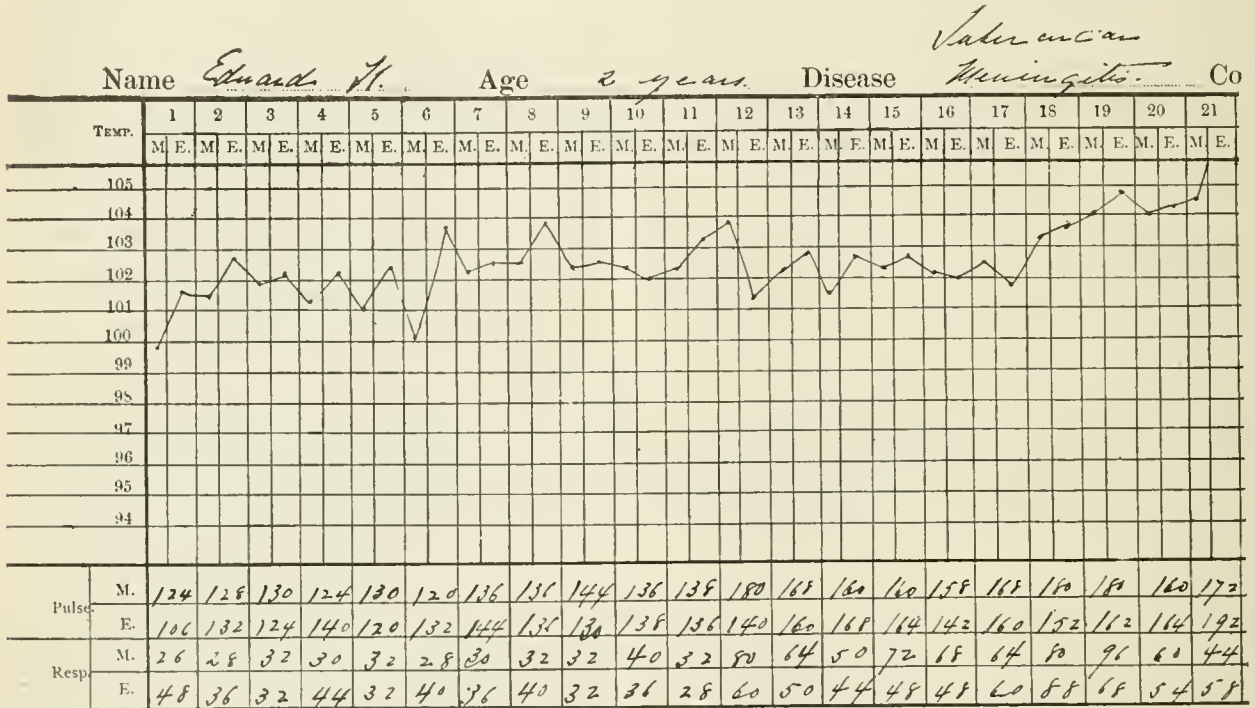 Tubercular
Name Edward H. Age 2 years. Disease Meningitis. Co
TEMP. 1 2 3 4 5 6 7 8 9 10 11 12 13 14 15 16 17 18 19 20 21
M. E. M. E. M. E. M. E. M. E. M. E. M. E. M. E. M. E. M. E. M. E. M. E. M. E. M. E. M. E. M. E. M. E. M. E. M. E. M. E. M. E.
105
104
103
102
101
100
99
98
97
96
95
94
Pulse. M. 124 128 130 124 130 120 136 136 144 136 138 180 168 160 160 158 168 180 180 160 172
E. 106 132 124 140 120 132 144 136 130 138 136 140 160 168 164 142 160 152 162 164 192
Resp. M. 26 28 32 30 32 28 30 32 32 40 32 80 64 50 72 68 64 80 96 60 44
E. 48 36 32 44 32 40 36 40 32 36 28 60 50 44 48 48 60 88 68 54 58